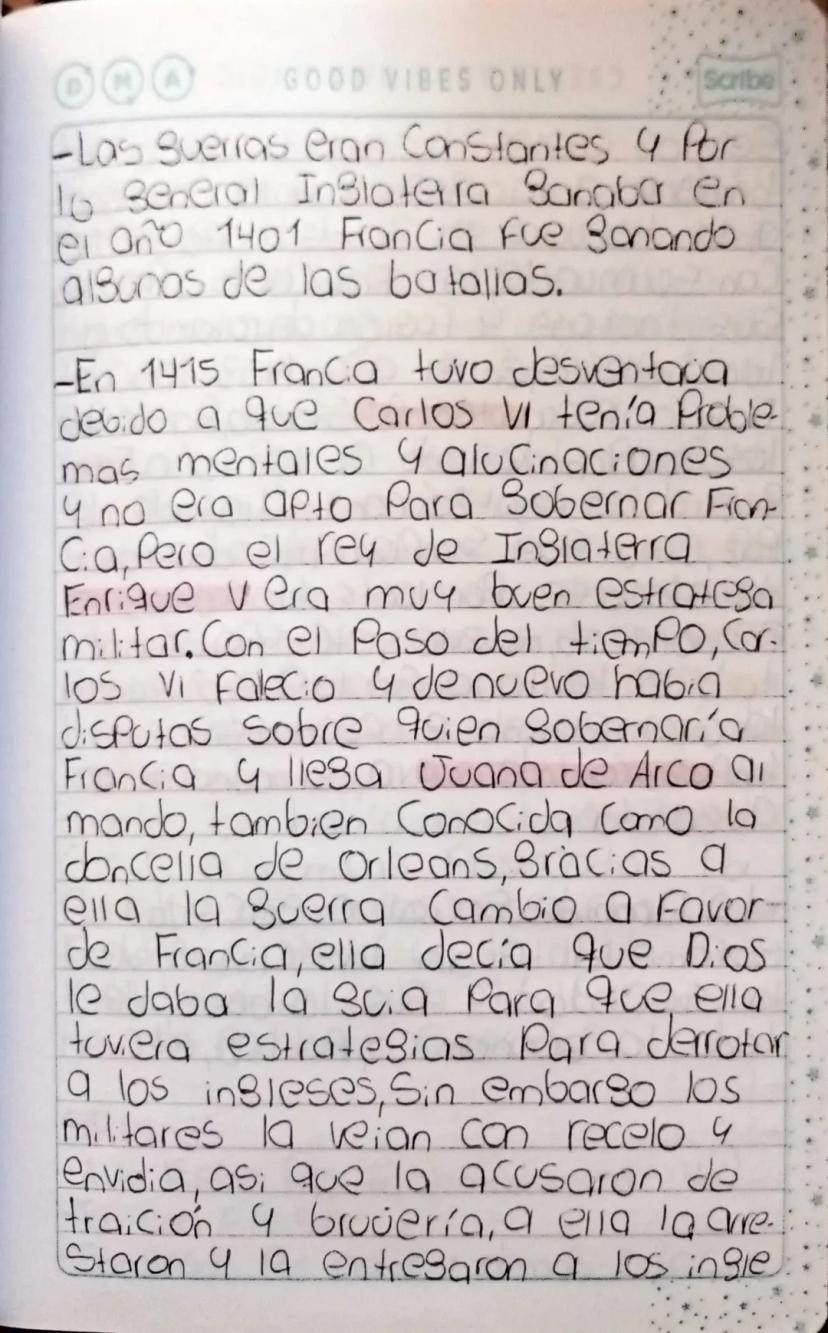 D M A GOOD VIBES ONLY Scribe
-Las guerras eran Constantes y Por
lo general Inglaterra ganaba en
el año 1401 Francia fue ganando
algunas de las batallas.
-En 1415 Francia tuvo desventaja
debido a que Carlos VI tenía Proble-
mas mentales y alucinaciones
y no era apto Para Gobernar Fran-
cia, Pero el rey de Inglaterra
Enrique V era muy buen estratega
militar. Con el Paso del tiempo, Car-
los VI Falecio y de nuevo habia
disputas sobre quien gobernaría
Francia y llega Juana de Arco al
mando, tambien Conocida como la
doncella de Orleans, gracias a
ella la guerra Cambio a Favor
de Francia, ella decía que Dios
le daba la guia Para que ella
tuviera estrategias Para derrotar
a los ingleses, Sin embargo los
militares la veian con recelo y
envidia, asi que la acusaron de
traición y brujería, a ella la arre-
staron y la entregaron a los ingle